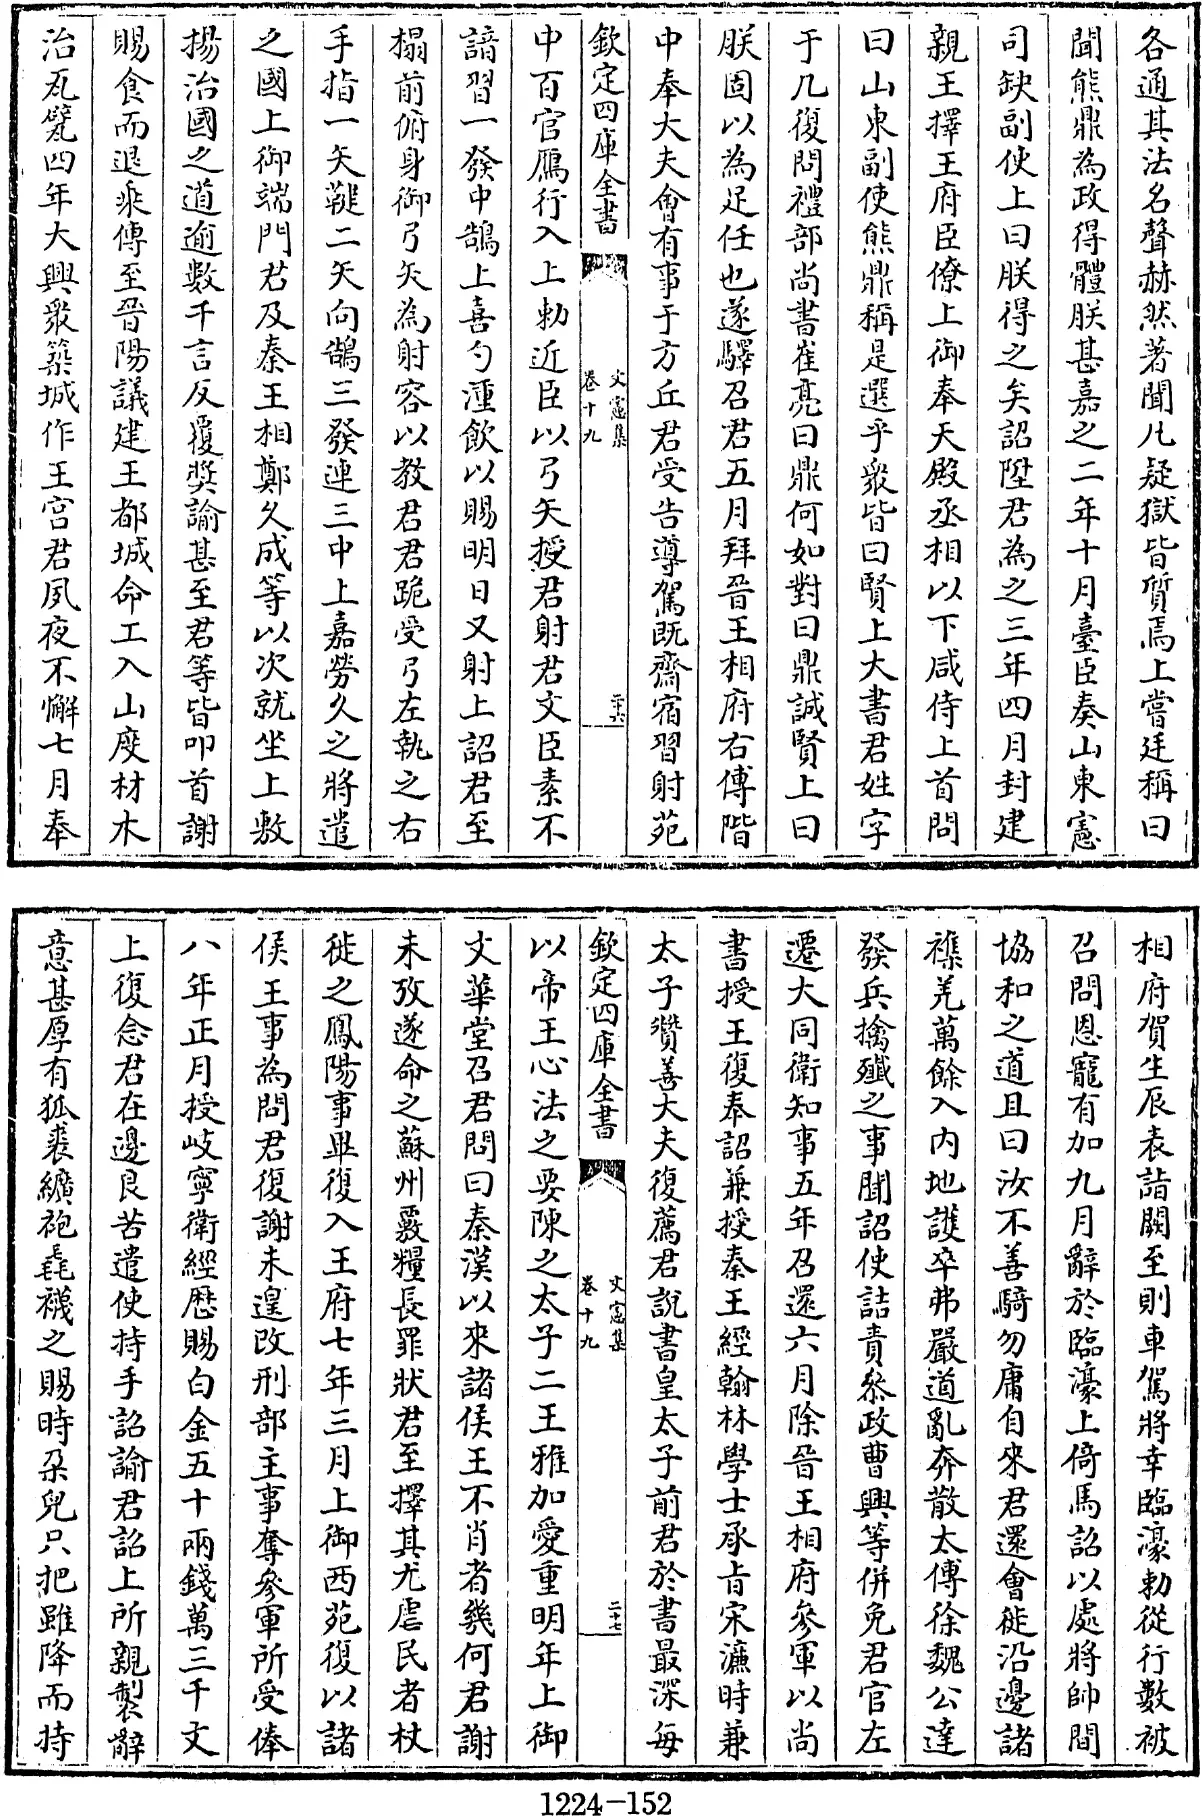 各通其法名聲赫然著聞凡疑獄皆質焉上嘗廷稱曰
聞熊鼎為政得體朕甚嘉之二年十月臺臣奏山東憲
司缺副使上曰朕得之矣詔陞君為之三年四月封建
親王擇王府臣僚上御奉天殿丞相以下咸侍上首問
曰山東副使熊鼎稱是選乎衆皆曰賢上大書君姓字
于几復問禮部尚書崔亮曰鼎何如對曰鼎誠賢上曰
朕固以為足任也遂驛召君五月拜晉王相府右傅階
中奉大夫會有事于方丘君受告導駕既齋宿習射苑
欽定四庫全書
文憲集
卷十九
二十六
中百官鴈行入上勅近臣以弓矢授君射君文臣素不
諳習一發中鵠上喜勺湩飲以賜明日又射上詔君至
榻前俯身御弓矢為射容以教君君跪受弓左執之右
手指一矢韔二矢向鵠三發連三中上嘉勞久之將遣
之國上御端門君及秦王相鄭久成等以次就坐上敷
揚治國之道逾數千言反覆奬諭甚至君等皆叩首謝
賜食而退乘傳至晉陽議建王都城命工入山庀材木
治瓦甓四年大興衆築城作王宮君夙夜不懈七月奉
相府賀生辰表詣闕至則車駕將幸臨濠勅從行數被
召問恩寵有加九月辭於臨濠上倚馬詔以處將帥間
協和之道且曰汝不善騎勿庸自來君還會徙沿邊諸
襍羌萬餘入内地護卒弗嚴道亂奔散太傅徐魏公達
發兵擒殲之事聞詔使詰責叅政曹興等併免君官左
遷大同衛知事五年召還六月除晉王相府參軍以尚
書授王復奉詔兼授秦王經翰林學士承旨宋濂時兼
太子贊善大夫復薦君説書皇太子前君於書最深每
欽定四庫全書
文憲集
卷十九
二十七
以帝王心法之要陳之太子二王雅加愛重明年上御
文華堂召君問曰秦漢以來諸侯王不肖者幾何君謝
未攷遂命之蘇州覈糧長罪狀君至擇其尤虐民者杖
徙之鳳陽事畢復入王府七年三月上御西苑復以諸
侯王事為問君復謝未遑改刑部主事奪參軍所受俸
八年正月授岐寧衛經歴賜白金五十兩錢萬三千文
上復念君在邊艮苦遣使持手詔諭君詔上所親製辭
意甚厚有狐裘纊袍毳襪之賜時朶兒只把雖降而持
1224-152